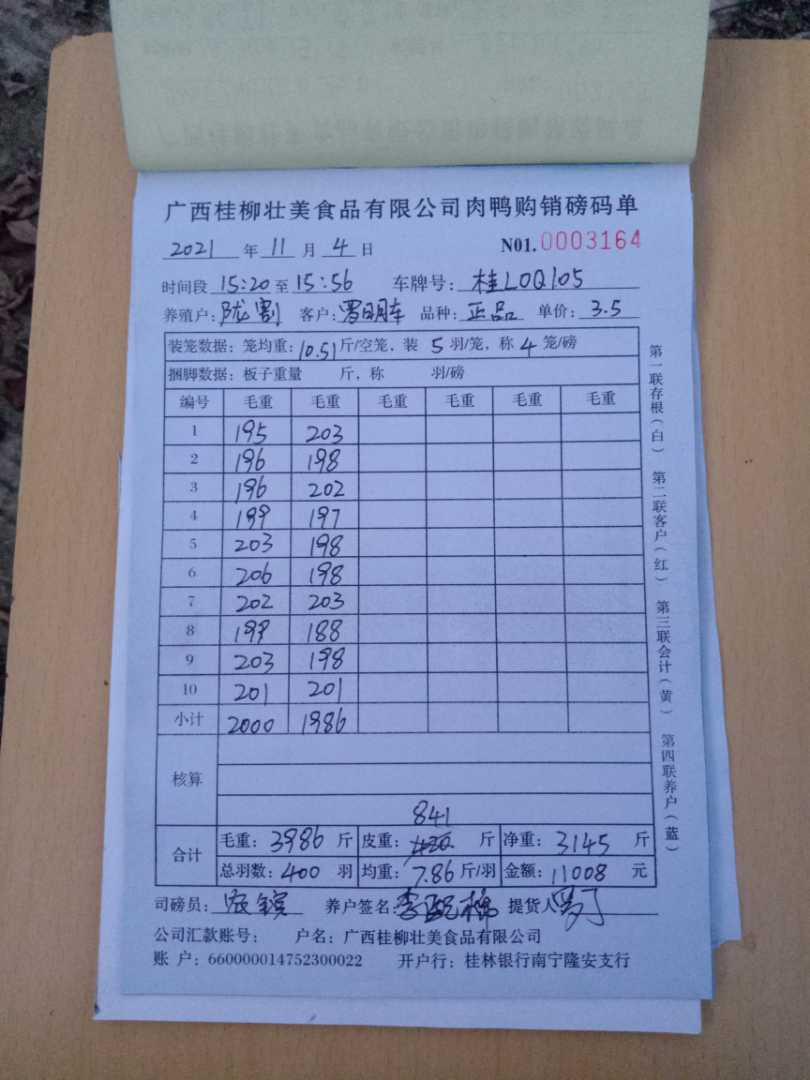 广西桂柳壮美食品有限公司肉鸭购销磅码单
2021 年 11 月 4 日 N01.0003164
时间段 15:20 至 15:56 车牌号: 桂L0Q105
养殖户: 陇割 客户: 罗明车 品种: 正品 单价: 3.5
装笼数据: 笼均重: 10.51 斤/空笼, 装 5 羽/笼, 称 4 笼/磅
捆脚数据: 板子重量 斤, 称 羽/磅
编号 毛重 毛重 毛重 毛重 毛重 毛重
1 195 203
2 196 198
3 196 202
4 199 197
5 203 198
6 206 198
7 202 203
8 199 188
9 203 198
10 201 201
小计 2000 1986
核算
841
合计 毛重: 3986 斤 皮重: 420 斤 净重: 3145 斤
总羽数: 400 羽 均重: 7.86 斤/羽 金额: 11008 元
司磅员: 养户签名: 李 棉 提货人
公司汇款账号: 户名: 广西桂柳壮美食品有限公司
账 户: 660000014752300022 开户行: 桂林银行南宁隆安支行
第一联存根(白) 第二联客户(红) 第三联会计(黄) 第四联养户(蓝)